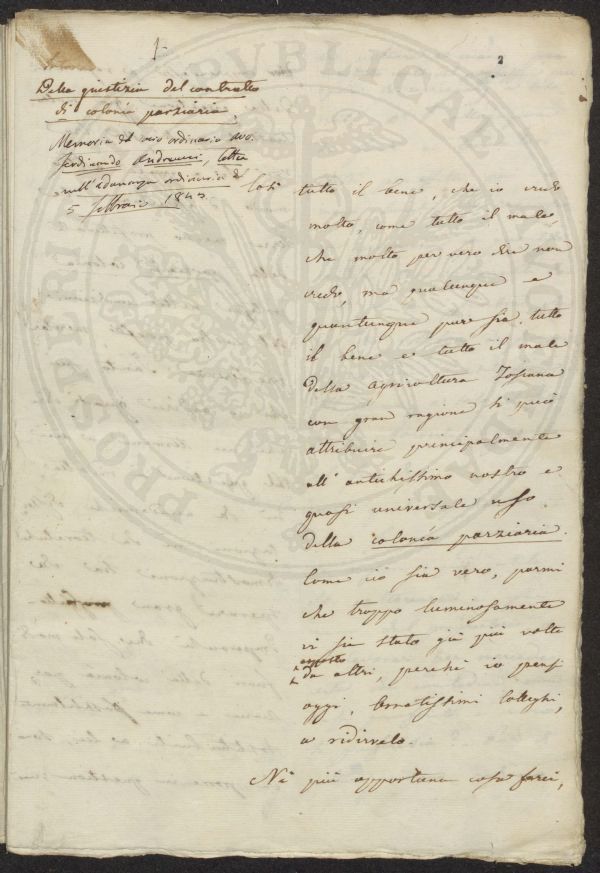 1
2
Della giustizia del contratto
di colonia parziaria,
Memoria del socio ordinario avv.
Ferdinando Andreucci, letta
nell'adunanza ordinaria de'
5 Febbraio
tutto il bene, che io credo
molto, come tutto il male,
che molto per vero dire non
credo, ma qualunque e
quantunque pure sia, tutto
il bene e tutto il male
della Agricoltura Toscana
con gran ragione si può
attribuire principalmente
all'antichissimo nostro e
quasi universale uso
della colonia parziaria.
Come ciò sia vero, parmi
che troppo luminosamente
vi sia stato già più volte
esposto
da altri, perché io pensi
oggi, Ornatissimi Colleghi,
a ridirvelo.
Nè più opportuna cosa farei,